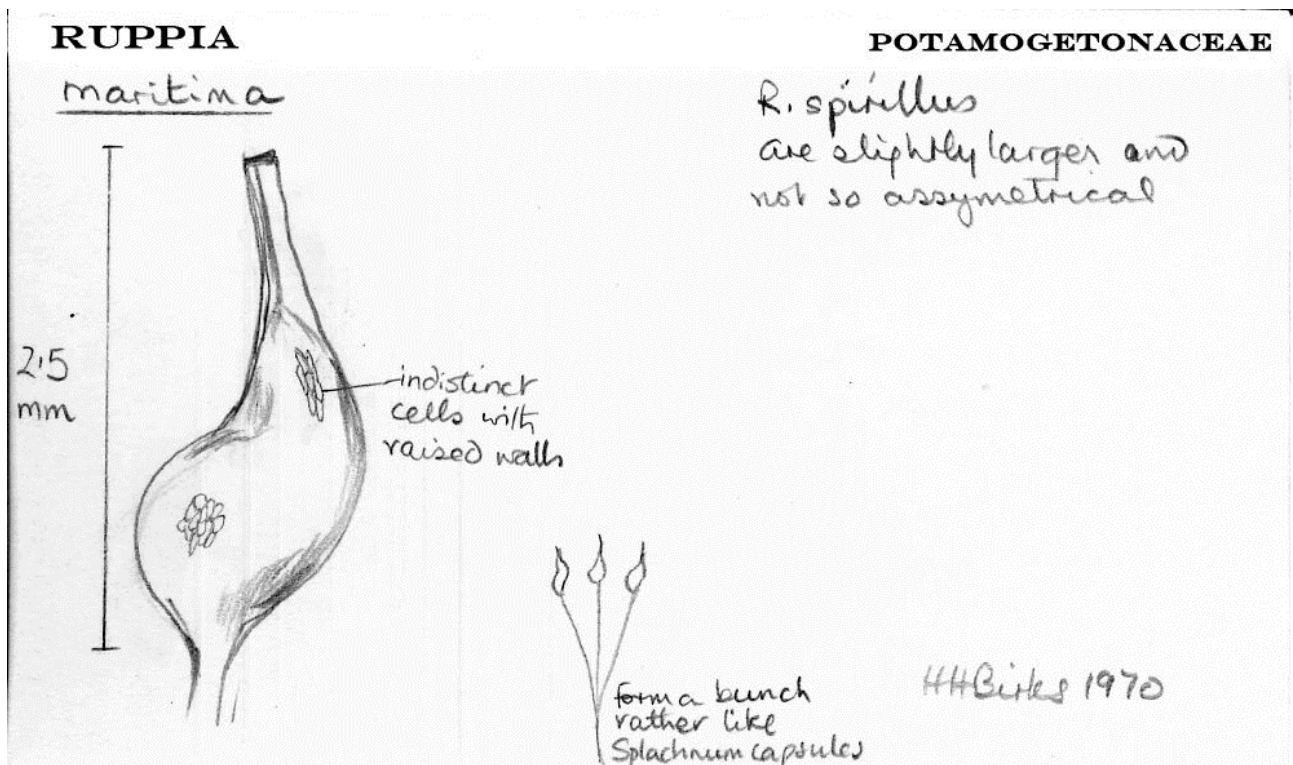 RUPPIA
POTAMOGETONACEAE
maritima
R. spirillus
are slightly larger and
not so assymetrical
2.5
mm
indistinct
cells with
raised walls
form a bunch
rather like
Splachnum capsules
HHBirks 1970